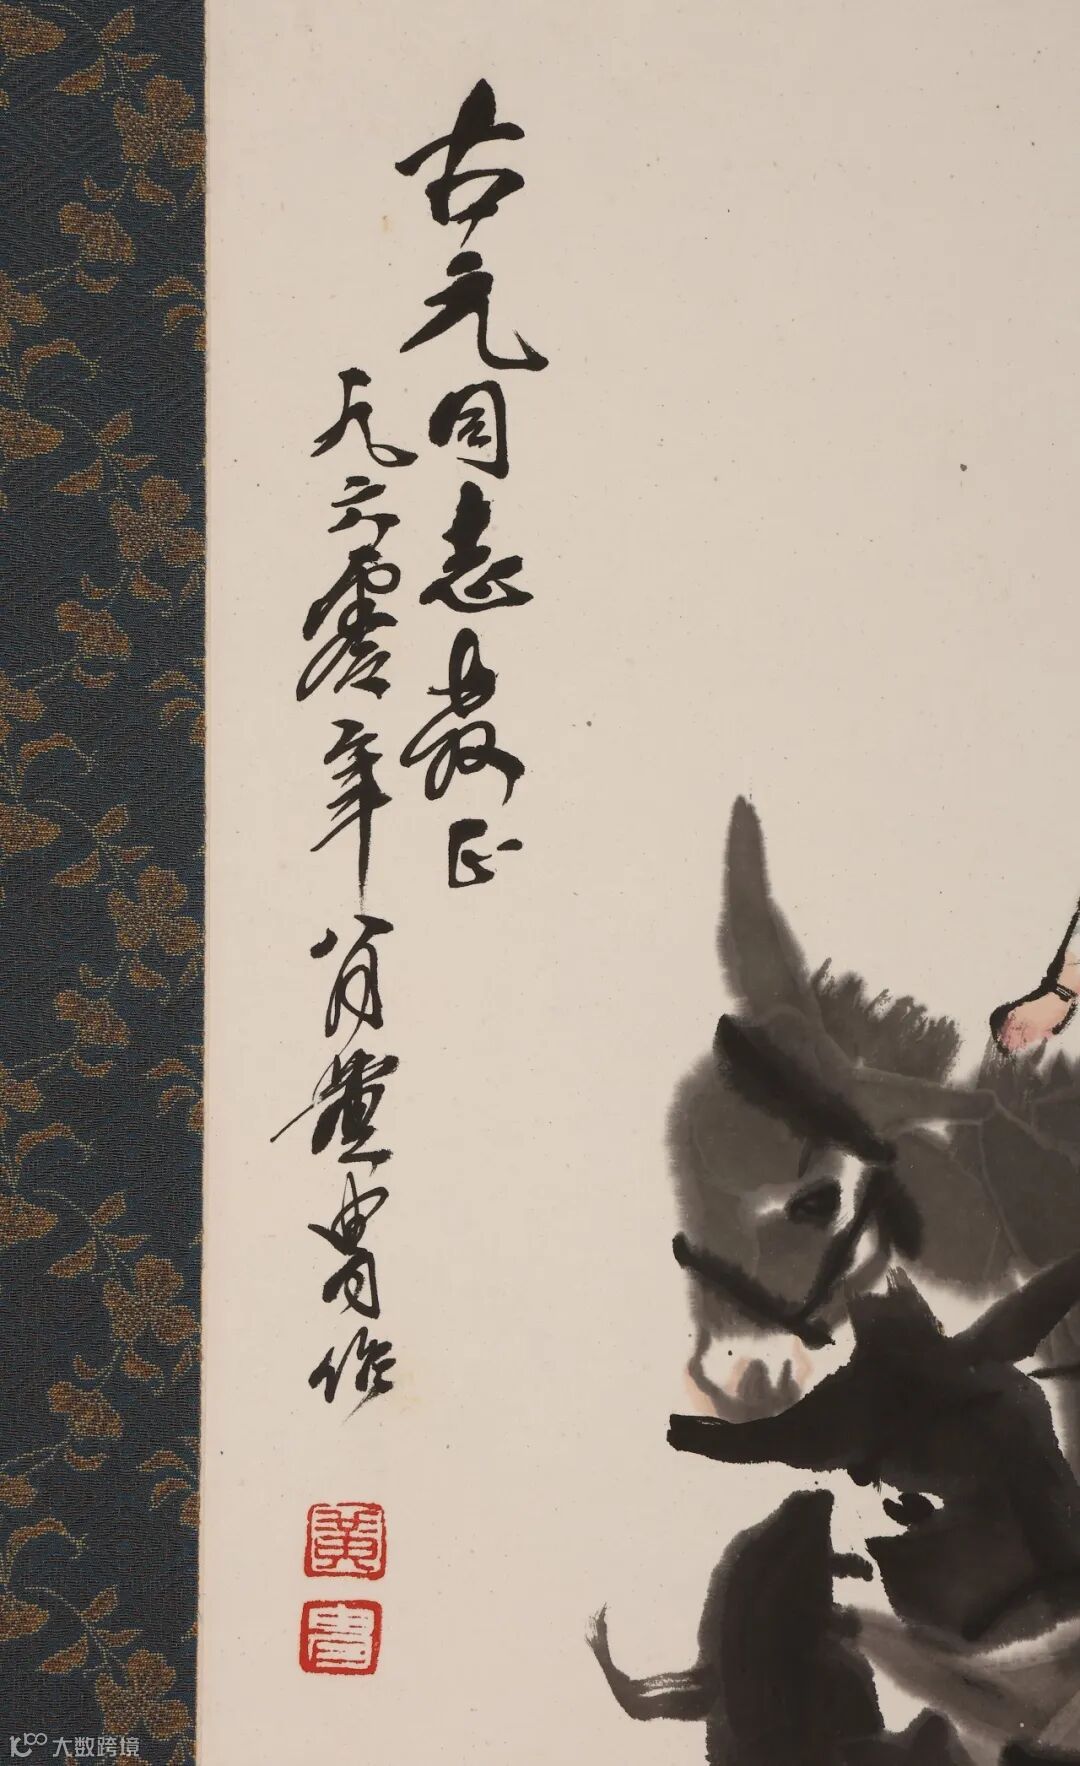 古元同志教正
一九六零年八月黄胄作
黄
胄
大数跨境